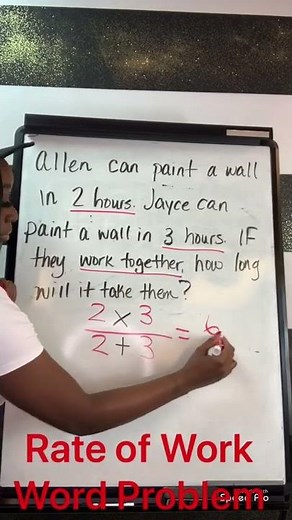 allen can paint a wall
in 2 hours. Jayce can
paint a wall in 3 hours. IF
they work together, how long
will it take them?
2 x 3
2 + 3
= 6
Rate of Work
Word Problem